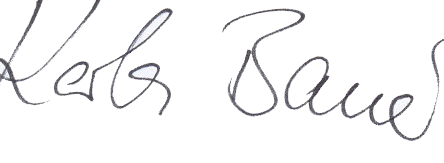 Karla Bauer